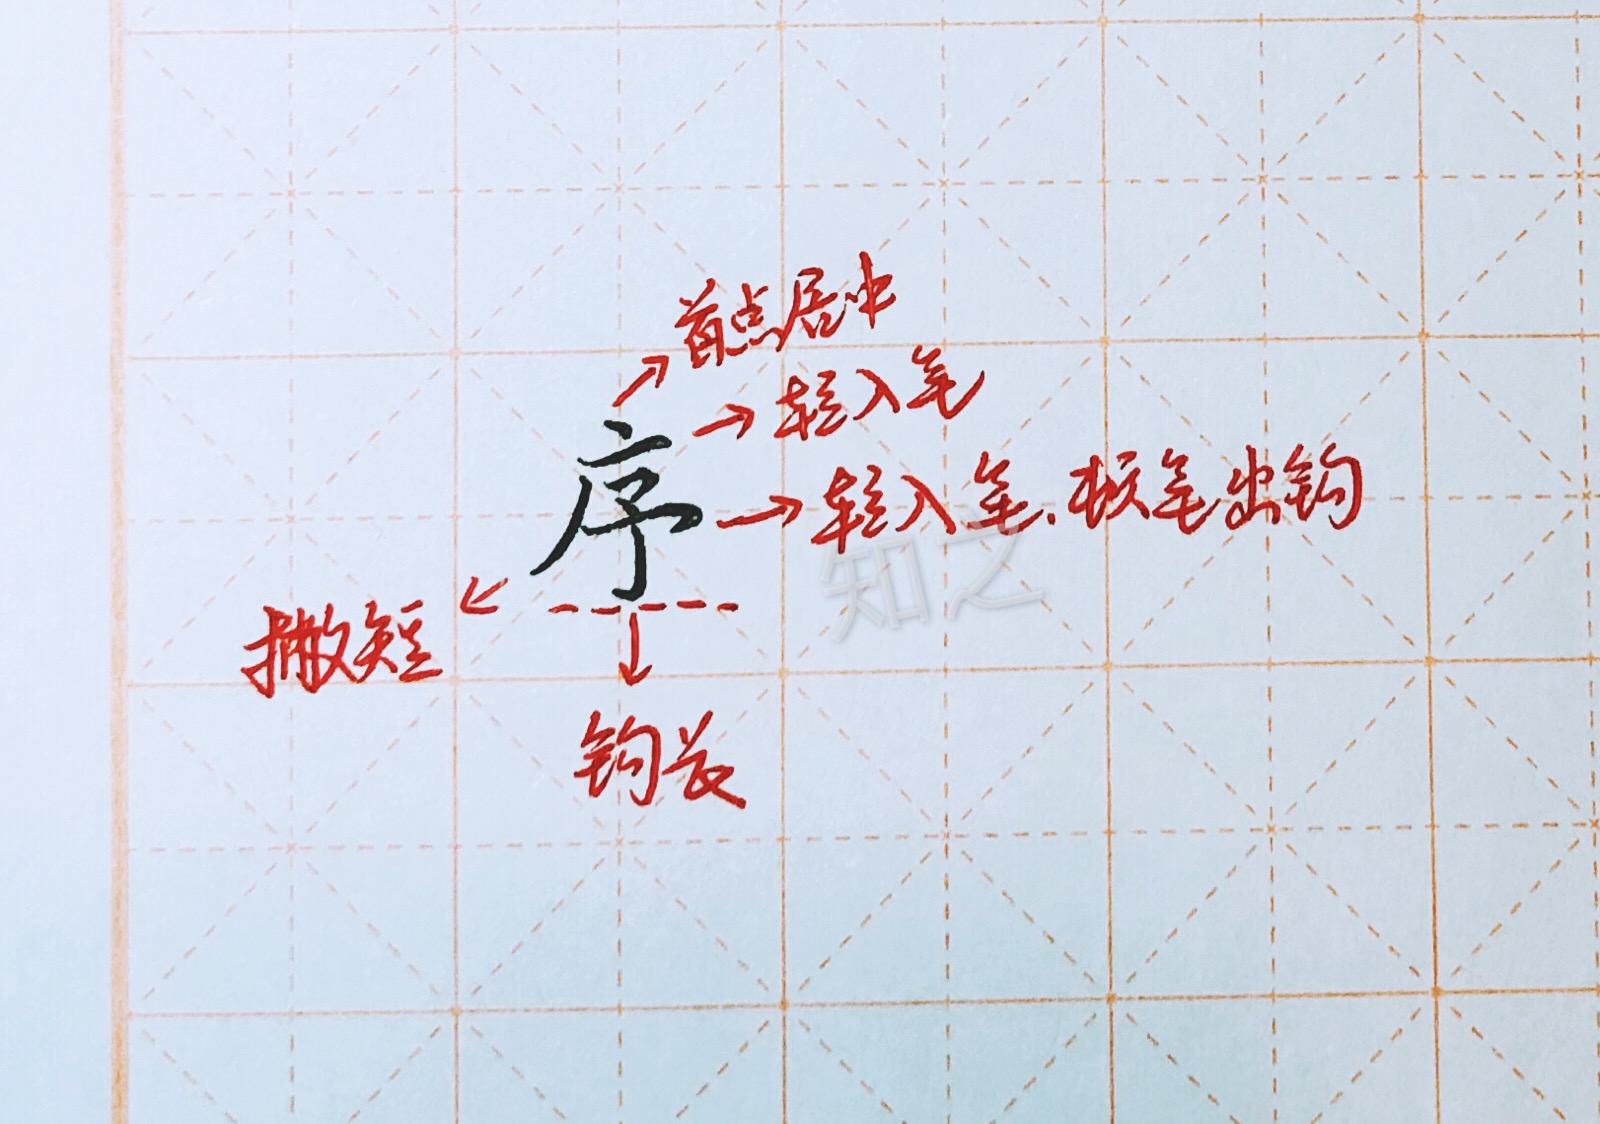 首点居中
轻入笔
序
轻入笔、顿笔出钩
撇短
钩长
知之